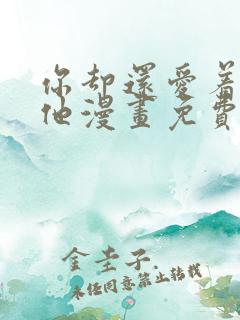 你却還愛着
他漫畫免費
金圭子.
未经同意禁止转载